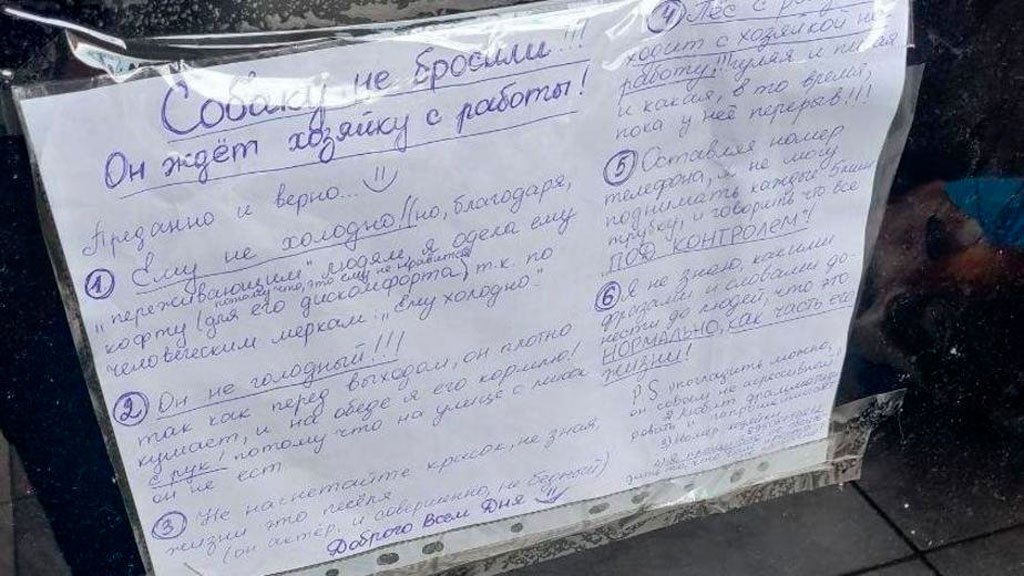 Собаку не бросили!!!
Он ждёт хозяйку с работы!
Преданно и верно...
① Ему не холодно!! (но, благодаря,
"переживающим" людям, я одела ему
потому что, это ему не нравится
кофту (для его дискомфорта) т.к. по
человеческим меркам: "Ему холодно"
② Он не голодный!!!
так как перед выходом, он плотно
кушает, и на обеде я его кормлю!
с рук! потому что на улице с миски
он не ест
③ Не нагнетайте красок, не зная,
жизни это пёселя
(он актёр, и совершенно, не бедный)
Доброго Всем Дня
④ Пёс с
ходит с хозяйкой на
работу!!! гуляя и писая
и какая, в то время,
пока у неё перерыв!!!
⑤ Оставляя номер
телефона, я не могу
поднимать каждый Божий
трубку, и говорить что все
"ПОД КОНТРОЛЕМ"!
⑥ Я не знаю, какими
фразами и словами до-
нести до людей, что это
НОРМАЛЬНО, как часть его
жизни!
P.S. погладить можно,
он совсем не агрессивный!